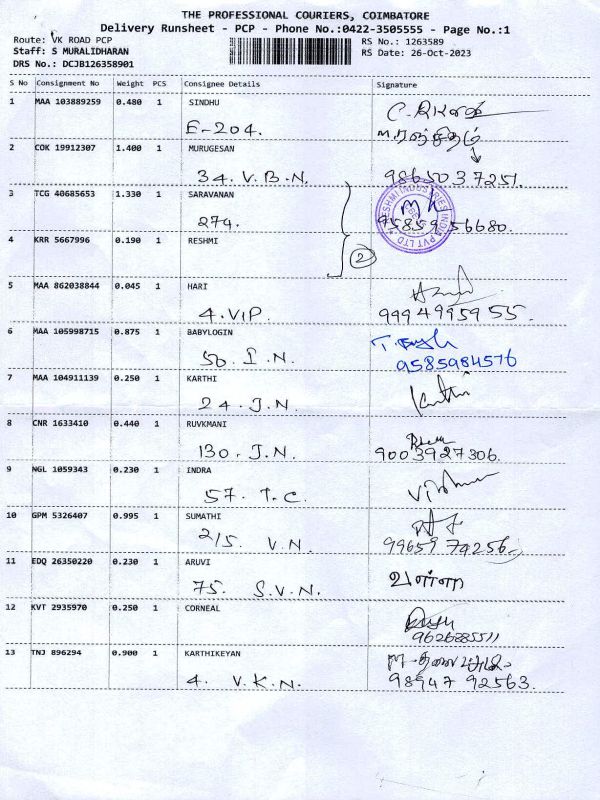 THE PROFESSIONAL COURIERS, COIMBATORE
Delivery Runsheet - PCP - Phone No.:0422-3505555 - Page No.:1
Route: VK ROAD PCP
RS No.: 1263589
Staff: S MURALIDHARAN
RS Date: 26-Oct-2023
DRS No.: DCJB126358901
S No Consignment No Weight PCS Consignee Details Signature
1 MAA 103889259 0.480 1 SINDHU
E-204.
2 COK 19912307 1.400 1 MURUGESAN
34. V.B.N. 98650 37251.
3 TCG 40685653 1.330 1 SARAVANAN
274. 95859 56680.
4 KRR 5667996 0.190 1 RESHMI
2
5 MAA 862038844 0.045 1 HARI
4. VIP. 99949959 55.
6 MAA 105998715 0.875 1 BABYLOGIN
50. I.N. 9585984576
7 MAA 104911139 0.250 1 KARTHI
24. J.N. Karthi
8 CNR 1633410 0.440 1 RUVKMANI
130. J.N. 9003927306.
9 NGL 1059343 0.230 1 INDRA
57. T.C.
10 GPM 5326407 0.995 1 SUMATHI
2/5. V.N. 99659 74256
11 EDQ 26350220 0.230 1 ARUVI
75. S.V.N.
12 KVT 2935970 0.250 1 CORNEAL
9626885511
13 TNJ 896294 0.900 1 KARTHIKEYAN
4. V.K.N. 98947 92563.